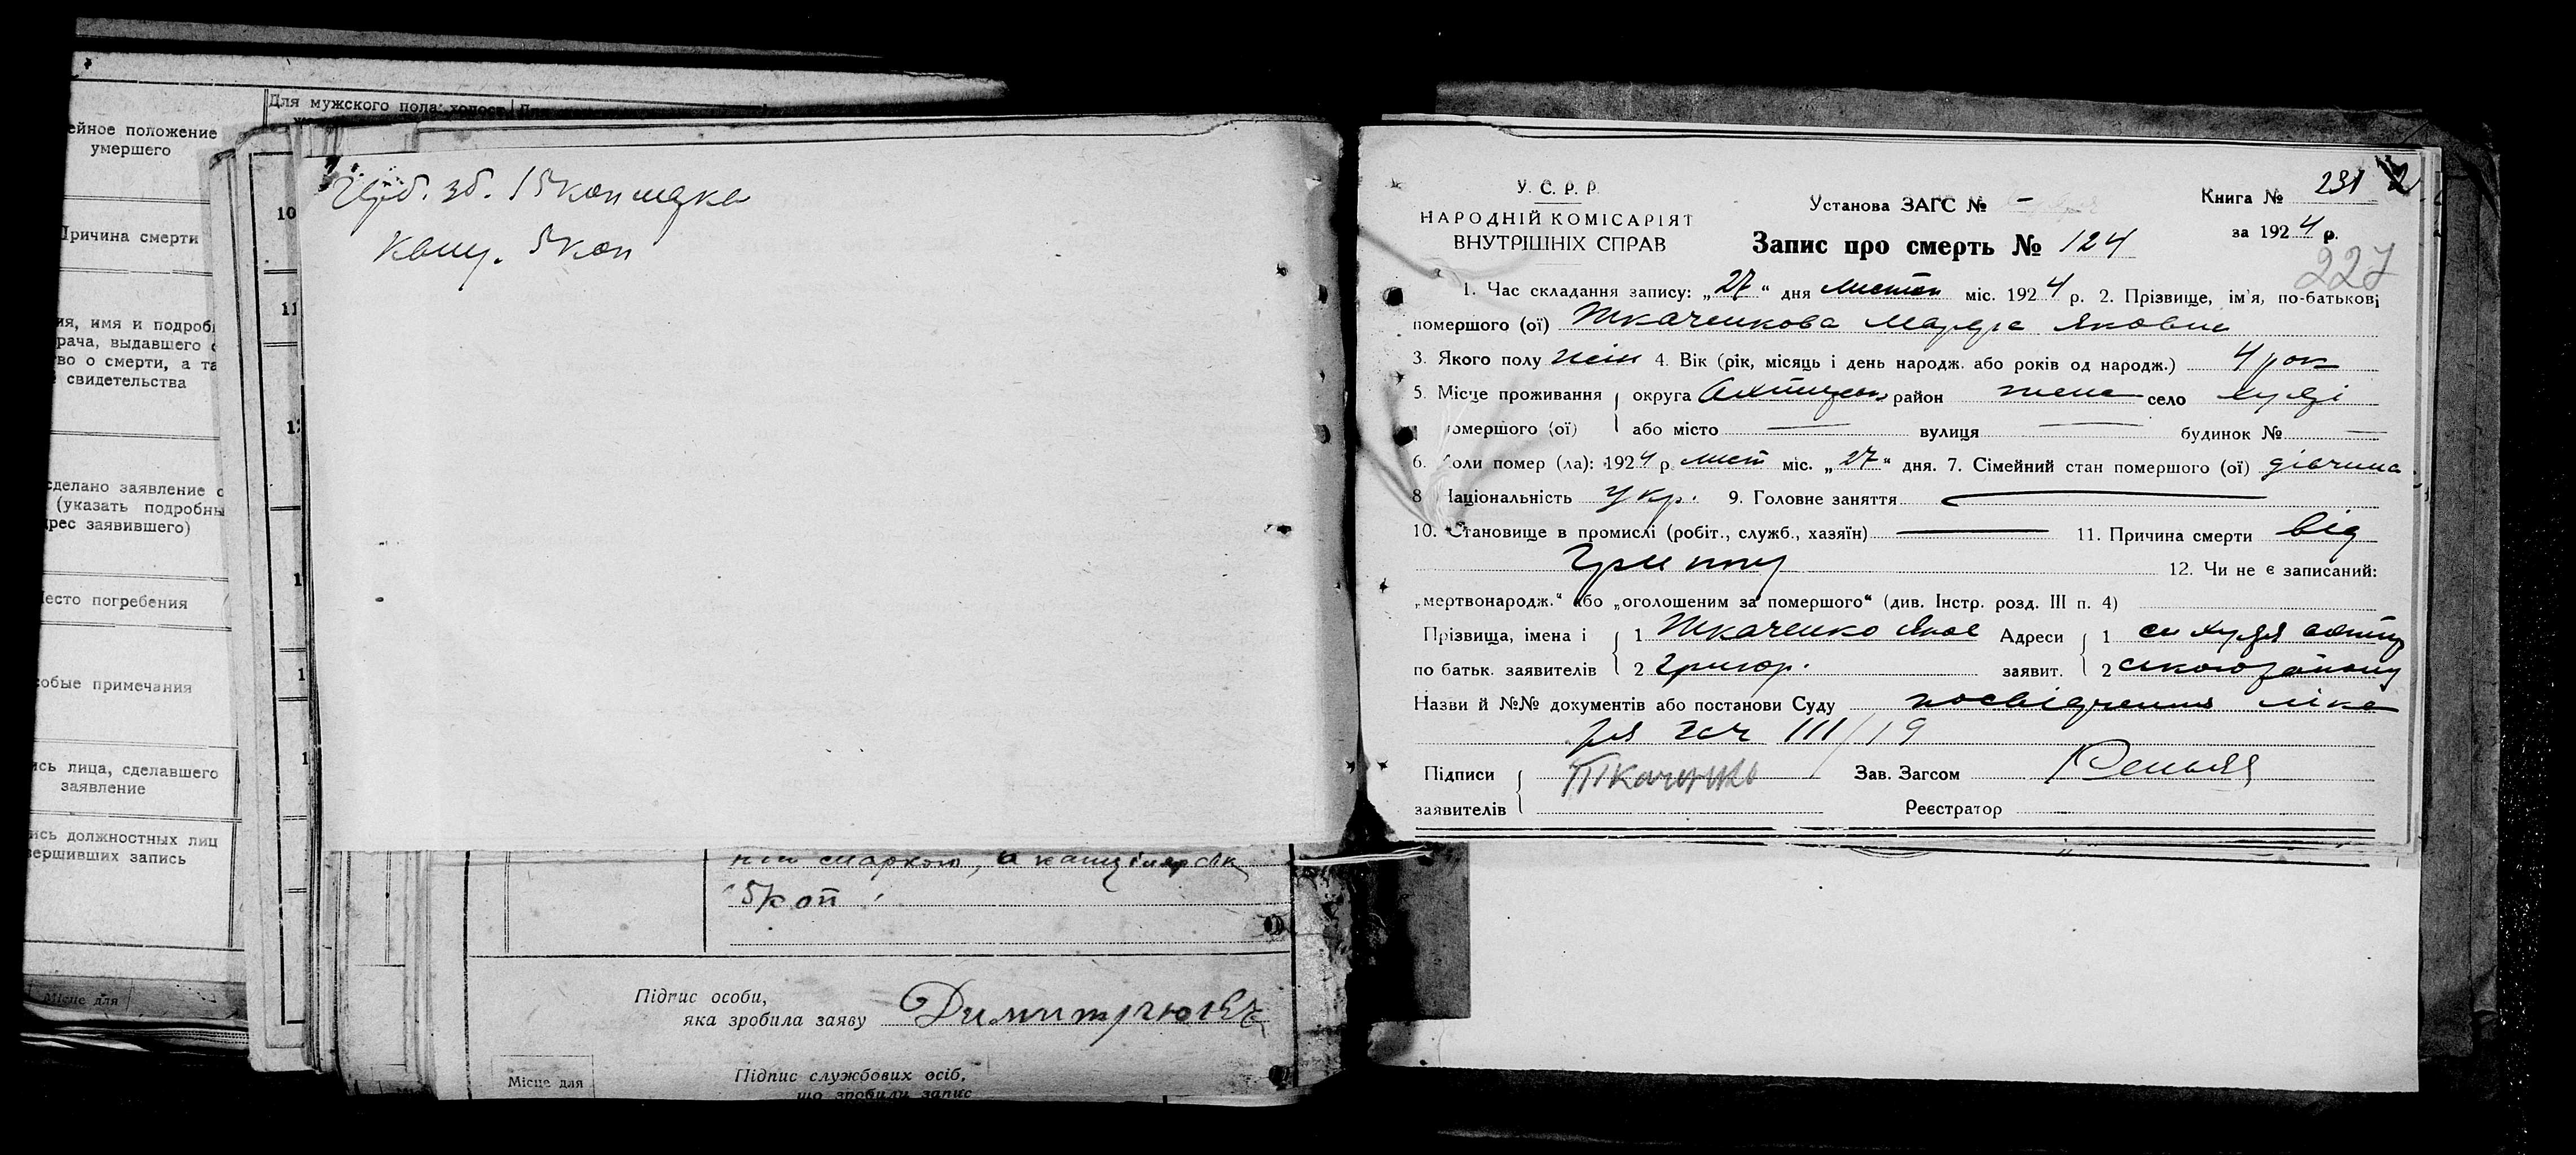 Для мужского пола: холост
ейное положение
умершего
10
Причина смерти
11
ия, имя и подроб
рача, выдавшего
во о смерти, а та
свидетельства
сделано заявление о
(указать подробны
рес заявившего)
1
есто погребения
1
собые примечания
1
ись лица, сделавшего
заявление
ись должностных лиц
вершивших запись
Місце для
зб. 15 коп
5 коп
маркою, а канцілярськ
5 коп
Підпис особи,
яка зробила заяву
Місце для
Підпис службових осіб,
що зробили запис
У. С. Р. Р.
НАРОДНІЙ КОМІСАРІЯТ
ВНУТРІШНІХ СПРАВ
Установа ЗАГС № –
Запис про смерть № 124
Книга № 231
за 1924 р.
227
1. Час складання запису: „27" дня листоп міс. 1924 р. 2. Прізвище, ім'я, по-батькові
помершого (ої) Ткаченкова Яковна
3. Якого полу жін 4. Вік (рік, місяць і день народж. або років од народж.) 4 рок
5. Місце проживання округа район село
помершого (ої) або місто — вулиця — будинок № —
6. Коли помер (ла): 1924 р. лист міс. „27" дня. 7. Сімейний стан помершого (ої) дівчина
8. Національність укр. 9. Головне заняття —
10. Становище в промислі (робіт., служб., хазяїн) — 11. Причина смерти від
грипу 12. Чи не є записаний:
„мертвонародж." або „оголошеним за помершого" (див. Інстр. розд. III п. 4)
Прізвища, імена і 1 Ткаченко Яков Адреси 1
по батьк. заявителів 2 Григор. заявит. 2 ського району
Назви й №№ документів або постанови Суду посвідчення ліка
ря III/19
Підписи Ткаченко Зав. Загсом
заявителів Реєстратор